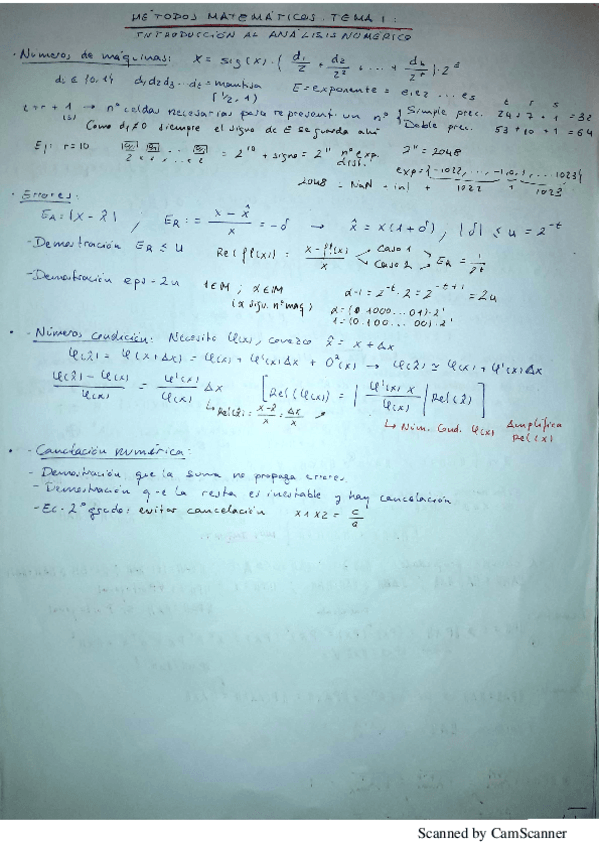 MÉTODOS MATEMÁTICOS. TEMA 1:
INTRODUCCIÓN AL ANÁLISIS NUMÉRICO
· Números de máquinas: x = sig(x) · ( d1/2 + d2/2² + ... + dt/2^t ) · 2^e
di ∈ {0,1} d1d2d3...dt = mantisa E = exponente = e1e2 ... es
[1/2, 1)
t r s
+ 1 → nº celdas necesarias para represent. un nº { Simple prec. 24 + 7 + 1 = 32
(s)
Como d1≠0 siempre el signo de E se guarda ahí Doble prec. 53 + 10 + 1 = 64
Ej: r=10 = 2^10 + signo = 2^11 nº exp. dist. 2^11 = 2048
exp = {-1022, ..., -1,0,1, ... 1023}
2048 - NaN - inf + 1022 1 1023
· Errores:
EA = |x - x̂| , ER := (x - x̂)/x = -δ → x̂ = x(1+δ), |δ| ≤ u = 2^-t
- Demostración ER ≤ u Rel(fl(x)) = (x - fl(x))/x Caso 1 Caso 2 ER = 1/2^t
- Demostración eps = 2u 1 ∈ M ; α ∈ M α-1 = 2^-t · 2 = 2^-t+1 = 2u
(α sigu. nº maq) α = (0.1000...01)·2^1
1 = (0.100...00)·2^1
· - Números condición: Necesito φ(x), conozco x̂ = x + Δx
φ(x̂) = φ(x+Δx) = φ(x) + φ'(x)Δx + O²(x) → φ(x̂) ≃ φ(x) + φ'(x)Δx
(φ(x̂) - φ(x))/φ(x) = φ'(x)/φ(x) Δx [ Rel(φ(x)) = | φ'(x) x / φ(x) | Rel(x̂) ]
↳ Rel(x̂) = (x-x̂)/x = Δx/x
↳ Núm. Cond. φ(x) Amplifica Rel(x)
· - Cancelación numérica:
- Demostración que la suma no propaga errores
- Demostración que la resta es inestable y hay cancelación
- Ec. 2º grado: evitar cancelación x1 x2 = c/a
Scanned by CamScanner